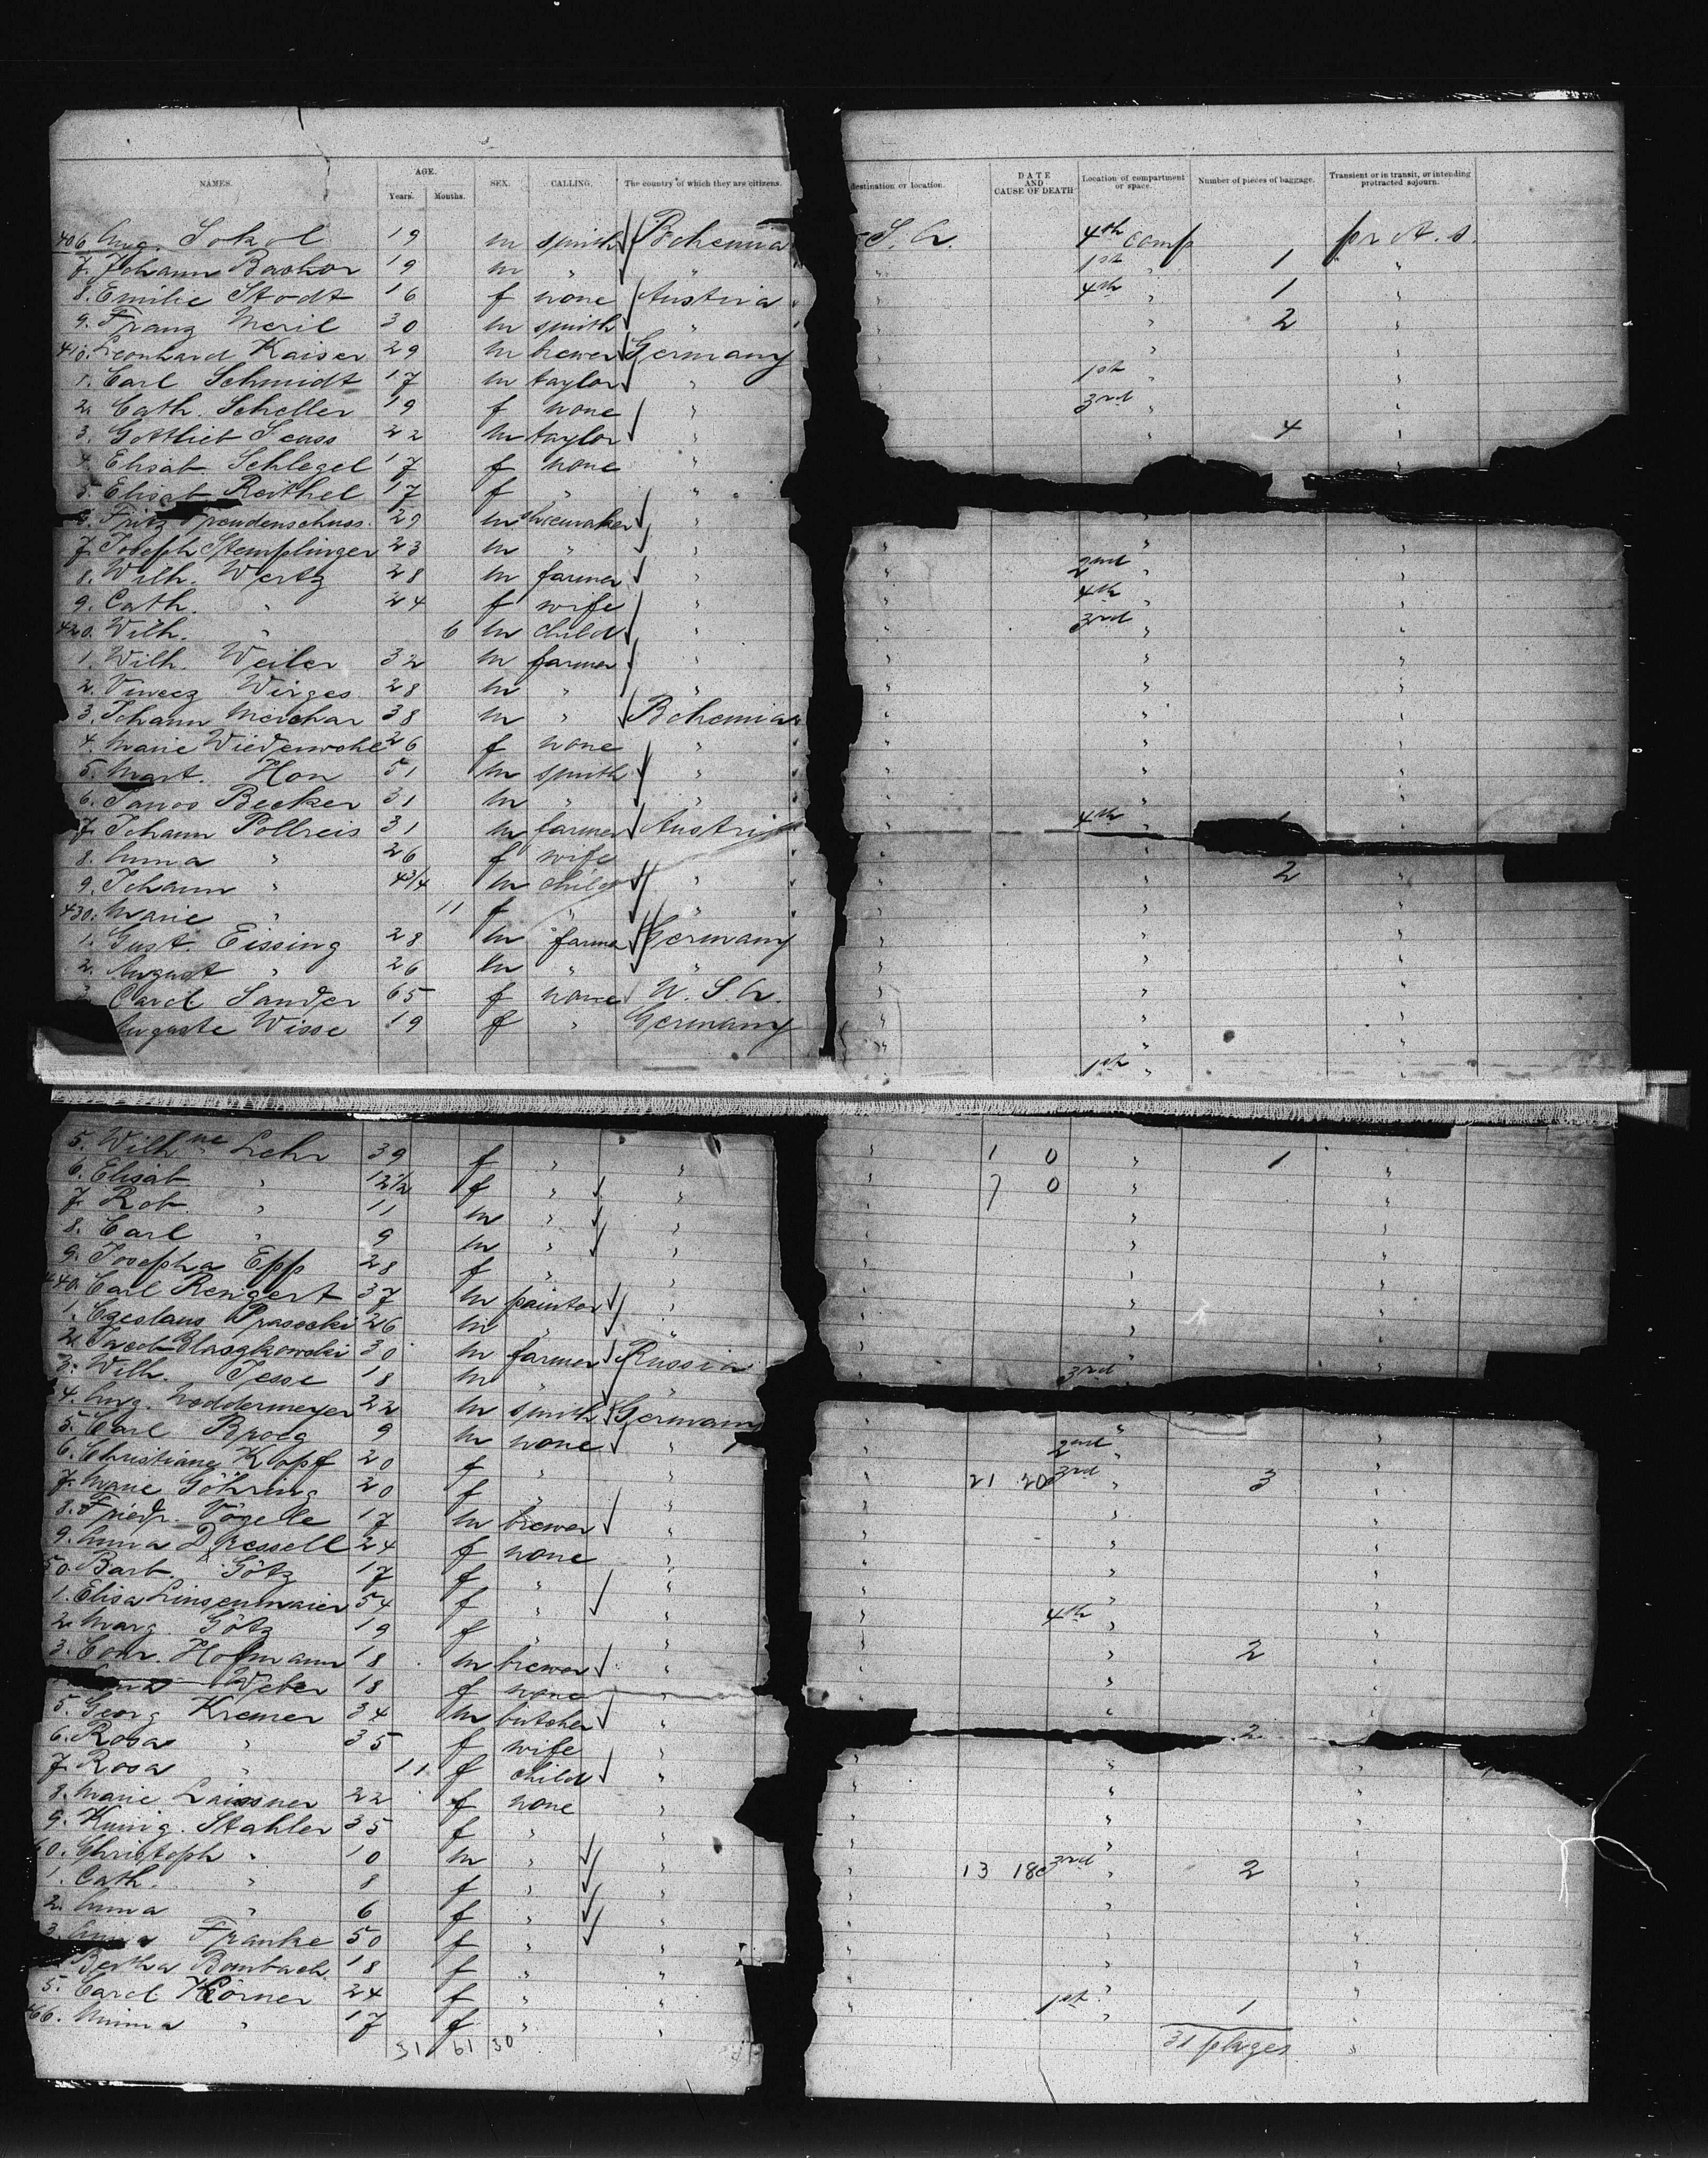 NAMES. AGE. SEX. CALLING. The country of which they are citizens.
Years. Months.
destination or location. DATE AND CAUSE OF DEATH Location of compartment or space. Number of pieces of baggage. Transient or in transit, or intending protracted sojourn.
406 Aug. Sokol 19 m smith Bohemia S. A. 4th comp pr A. S.
7. Johann 19 m " " " 1st " 1 "
8. Emilie Stodt 16 f none Austria " 4th " 1 "
9. Franz 30 m smith " " " 2 "
410. Leonhard Kaiser 29 m brewer Germany " " "
1. Carl Schmidt 17 m taylor " " 1st " "
2. Cath. Scheller 19 f none " " 3rd " "
3. Gottlieb Seuss 22 m taylor " " " 4 "
4. Elisab. Schlegel 17 f none "
5. Elisab. Reithel 17 f " "
6. Fritz Freudenschuss. 29 m shoemaker " " " "
7. Joseph Stemplinger 23 m " " " " "
8. Wilh. Wertz 28 m farmer " " 2nd " "
9. Cath. " 24 f wife " " 4th " "
420. Wilh. " 6 m child " " 3rd " "
1. Wilh. Weiler 32 m farmer " " " "
2. Vincez Wirges 28 m " " " " "
3. Johann 38 m " Bohemia " " "
4. Marie Wiederwohl 26 f none " " " "
5. Mart. Hon 51 m smith " " " "
6. Becker 31 m " " " " "
7. Johann Pollreis 31 m farmer Austria " 4th " 1
8. Anna " 26 f wife " " "
9. Johann " 4 3/4 m child " " " 2 "
430. Marie " 11 f " " " " "
1. Gust. Eissing 28 m farmer Germany " " "
2. August " 26 m " " " " "
3. Carol. Sander 65 f none U. S. A. " " "
Auguste Wisse 19 f " Germany " " "
" 1st " "
5. Wilhne Lehr 39 f " " " 1 0 " 1 "
6. Elisab. " 12 1/2 f " " " 7 0 " "
7. Rob. " 11 m " " " " "
8. Carl " 9 m " " " " "
9. Josepha Epp 28 f " " " " "
440. Carl Rengert 37 m painter " " " "
1. Czeslaus Prasecki 26 m " " " " "
2. Jacob Blaszkowski 30 m farmer Russia " " "
3. Wilh. Jesse 18 m " " " 3rd " "
4. Aug. Noddermeyer 22 m smith Germany " " "
5. Carl 9 m none " " 2nd " "
6. Christiane Kopf 20 f " " " 21 20 3rd " 3 "
7. Marie Göhring 20 f " " " " "
8. Friedr. Vögele 17 m brewer " " " "
9. Anna Dressell 24 f none " " " "
50. Barb. Götz 17 f " " " " "
1. Elisa Linsenmaier 54 f " " " 4th " "
2. Marg. Götz 19 f " " " " 2 "
3. Conr. Hofmann 18 m brewer " " " "
Weber 18 f none " " " "
5. Georg Kremer 34 m butcher " " 2
6. Rosa " 35 f wife " " " "
7. Rosa " 11 f child " " " "
8. Marie Laissner 22 f none " " " "
9. Kunig. Stahler 35 f " " " " "
60. Christoph " 10 m " " " 13 18 3rd " 2 "
1. Cath. " 8 f " " " " "
2. Anna " 6 f " " " " "
3. Anna Franke 50 f " " " " "
Bertha Bombach 18 f " " " " "
5. Carol. Körner 24 f " " " 1st " 1 "
466. Minna " 17 f " " " " "
31 61 30
31